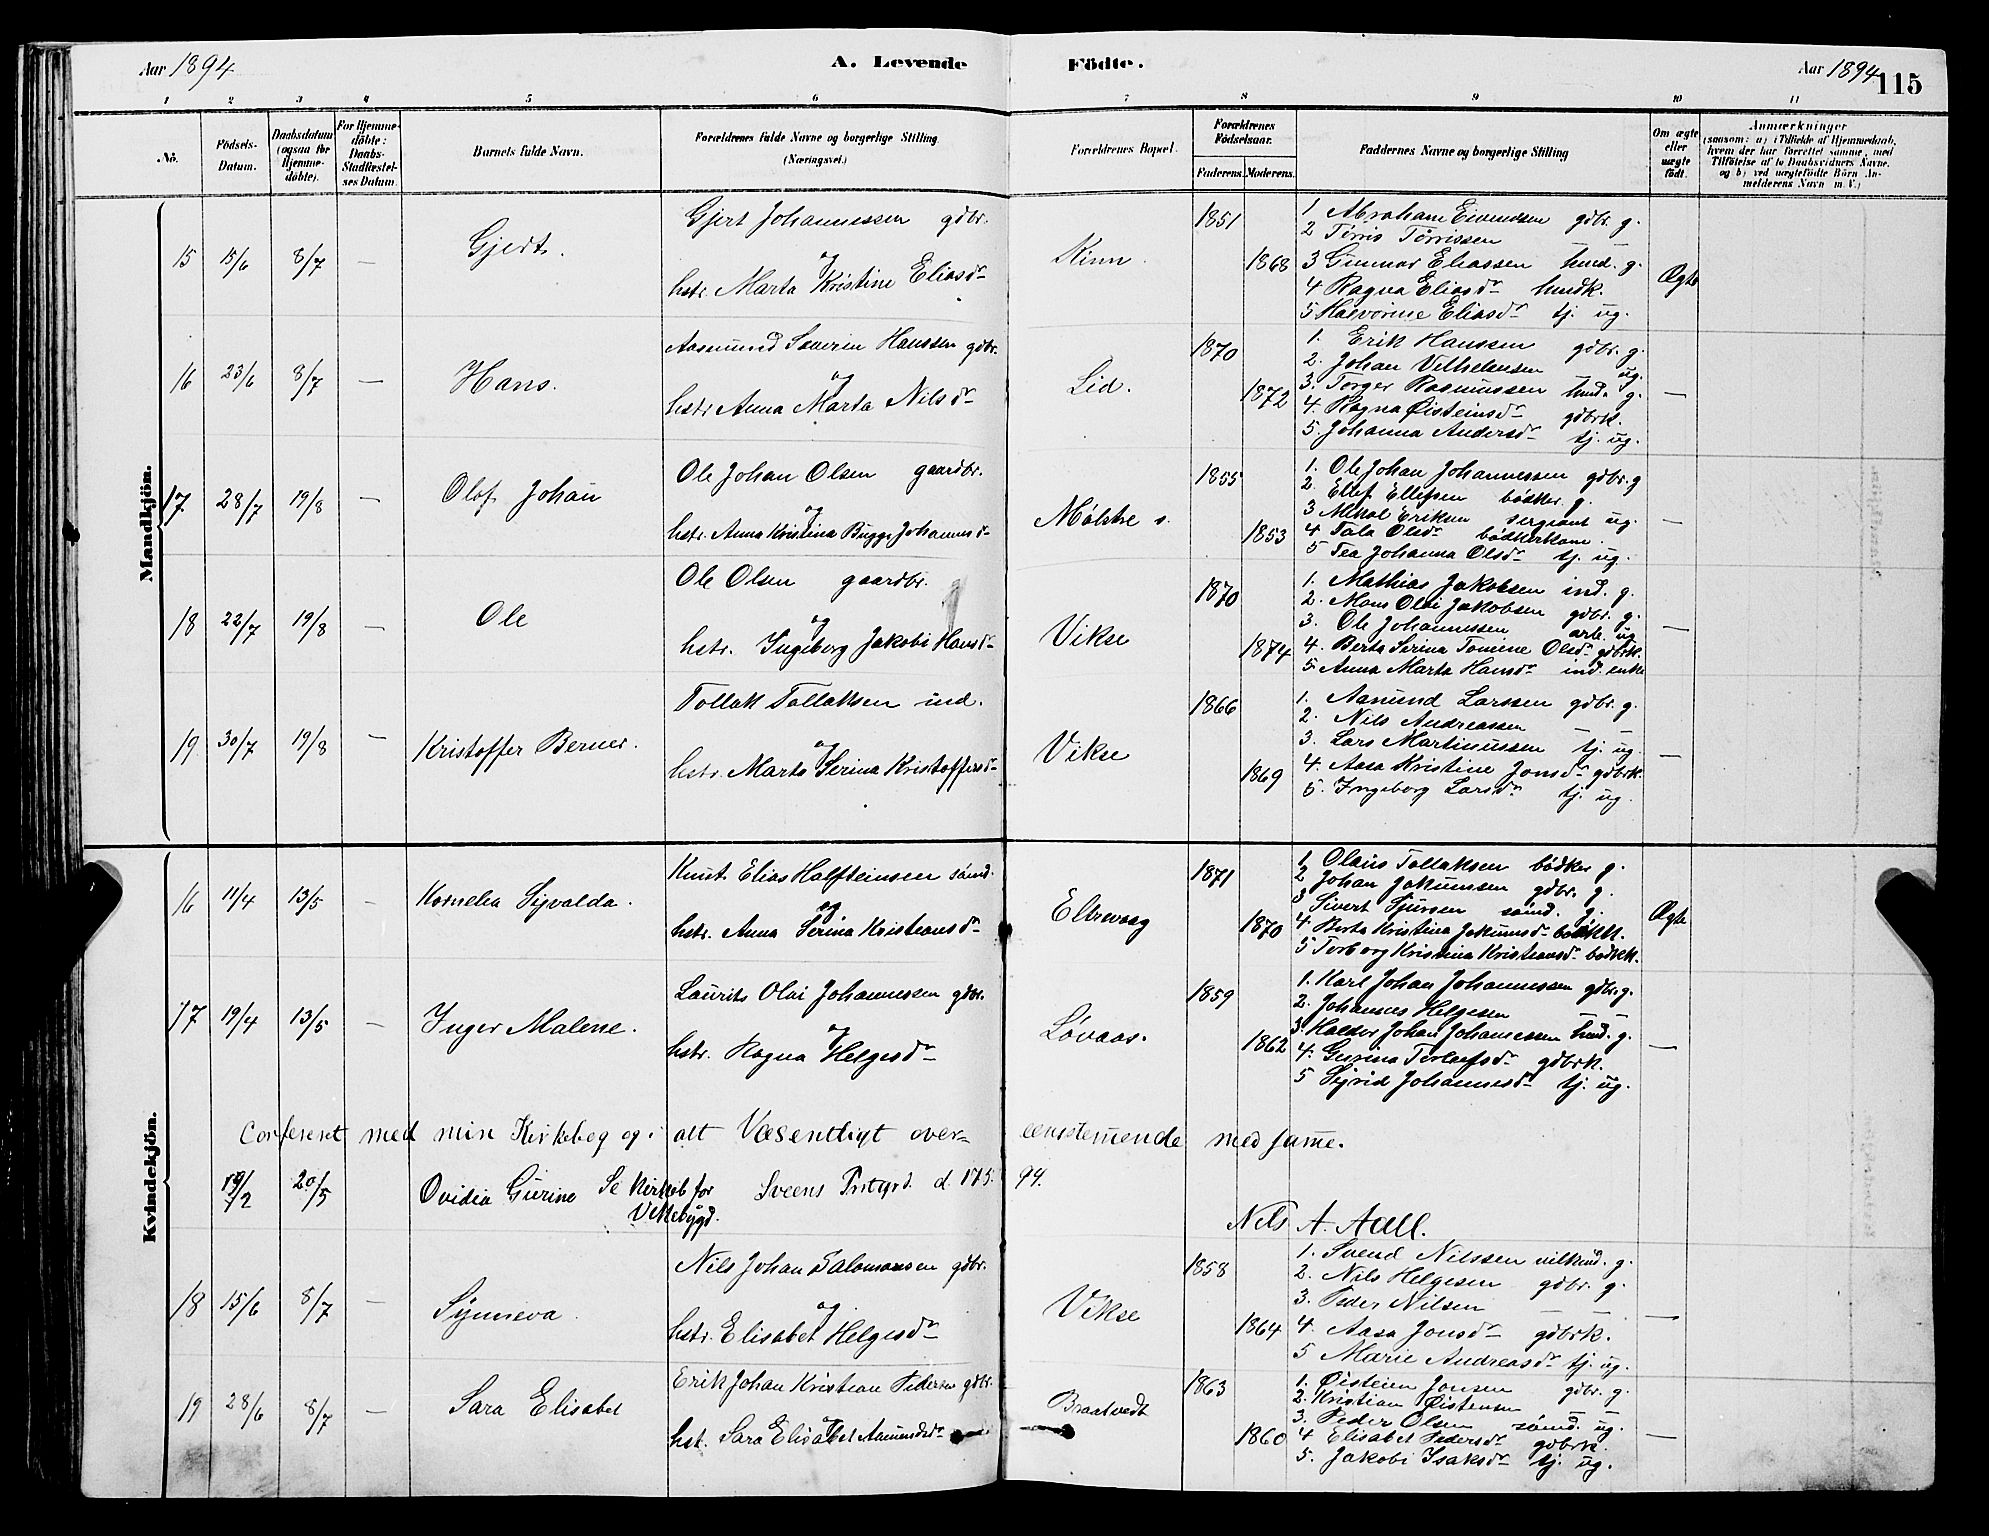 Aar 1894 A. Levende Födte. Aar 1894 115
1 2 3 4 5 6 7 8 9 10 11
No. Födsels-Datum. Daabsdatum (ogsaa for Hjemme-döbte). For Hjemme-döbte: Daabs-Stadfæstel-ses Datum. Barnets fulde Navn. Forældrenes fulde Navne og borgerlige Stilling (Næringsvei.) Forældrenes Bopæl. Forældrenes Födselsaar. Faderens. Moderens. Faddernes Navne og borgerlige Stilling Om ægte eller uægte födt. Anmærkninger (saasom: a) i Tilfælde af Hjemmedaab, hvem der har forrettet samme, med Tilföielse af to Daabsvidners Navne, og b) ved uægtefödte Börn An-melderens Navn m. V.)
Mandkjön.
15 15/6 8/7 — Gjert. Kinn
Gjert Johannessen gdbr.
og
hstr. Marta Kristine Eliasdr
1851
1868
1 Abraham Eivendsen gdbr. g.
2 Tørris Tørrissen — —
3 Gunnar Eliassen hmd. g.
4 Ragna Eliasdr hmdk.
5 Halvorine Eliasdr tj. ug.
Ægte
16 23/6 8/7 — Hans. Lid.
Aasmund Severin Hanssen gdbr.
og
hstr. Anna Marta Nilsdr
1870
1872
1. Erik Hanssen gdbr. g.
2. Johan Vilhelmsen ug.
3. Torger Rasmussen hmd. g.
4. Ragna Øisteinsdr gdbrk.
5. Johanna Andersdr tj. ug.
—
17 28/7 19/8 — Olaf Johan Mølstre s.
Ole Johan Olsen gaardbr.
og
hstr. Anna Kristina Bugge Johannesdr
1855
1853
1. Ole Johan Johannessen gdbr. g
2. Ellef Ellefsen bødker g.
3 Mikal Eriksen sergeant ug.
4 Tala Olsdr bødkerkone
5 Tea Johanna Olsdr tj. ug.
—
18 22/7 19/8 — Ole Vikse
Ole Olsen gaardbr.
og
hstr. Ingeborg Jakobe Hansdr
1870
1874
1. Mathias Jakobsen ind. g.
2. Mons Olai Jakobsen gdbr. g.
3. Ole Johannessen arb. ug
4. Berta Serina Tomine Olsdr gdbrk.
5. Anna Marta Hansdr ind. enke
—
19. 30/7 19/8 — Kristoffer Berner. Vikse
Tollak Tollaksen ind.
og
hstr. Marta Serina Kristoffersdr
1866
1869
1. Aamund Larssen gdbr. g.
2. Nils Andreassen — —
3. Lars Martinussen tj. ug.
4. Aasa Kristine Jonsdr gdbrk.
5. Ingeborg Larsdr tj. ug.
—
Kvindekjön.
16 11/4 13/5 — Kornelia Sigvalda. Eltrevaag
Knut Elias Halfteinsen sømd.
og
hstr. Anna Serina Kristiansdr
1871
1870
1. Olaus Tollaksen bødker g.
2 Johan Jakunsen gdbr. g.
3 Sivert Sjursen sømd. g.
4. Berta Kristina Jakunsdr bødkk.
5 Torborg Kristina Kristiansdr bødkk.
Ægte
17 19/4 13/5 — Inger Malene. Løvaas.
Laurits Olai Johannessen gdbr.
og
hstr. Ragna Helgesdr
1859
1862
1. Karl Johan Johannessen gdbr. g.
2. Johannes Helgesen — —
3. Haldor Johan Johannessen hmd. g.
4. Gurina Torleifsdr gdbrk.
5 Sigrid Johannesdr tj. ug.
—
Confereret med min Kirkebog og i alt Væsentligt over-eenstemende med samme.
19/2 20/5 Ovidia Gurine Se Kirkeb for Vikebygd. Sveens Prstgrd. d. 17 5. 94.
Nils A. Aall.
18 15/6 8/7 — Synneva. Vikse
Nils Johan Salomonsen gdbr.
og
hstr. Elisabet Helgesdr
1858
1864
1. Svend Nilssen g.
2. Nils Helgesen gdbr. g.
3. Peder Nilsen — —
4. Aasa Jonsdr gdbrk.
5 Marie Andreasdr tj. ug.
—
19 28/6 8/7 — Sara Elisabet Braatvedt
Erik Johan Kristian Pedersen gdbr.
og
hst. Sara Elisabet Aamundsdr
1863
1860
1. Øistein Jonsen gdbr. g.
2. Kristian Øistensen — —
3. Peder Olsen sømd. ug.
4 Elisabet Pedersdr gdbrk.
5. Jakobe Isaksdr tj. ug.
—